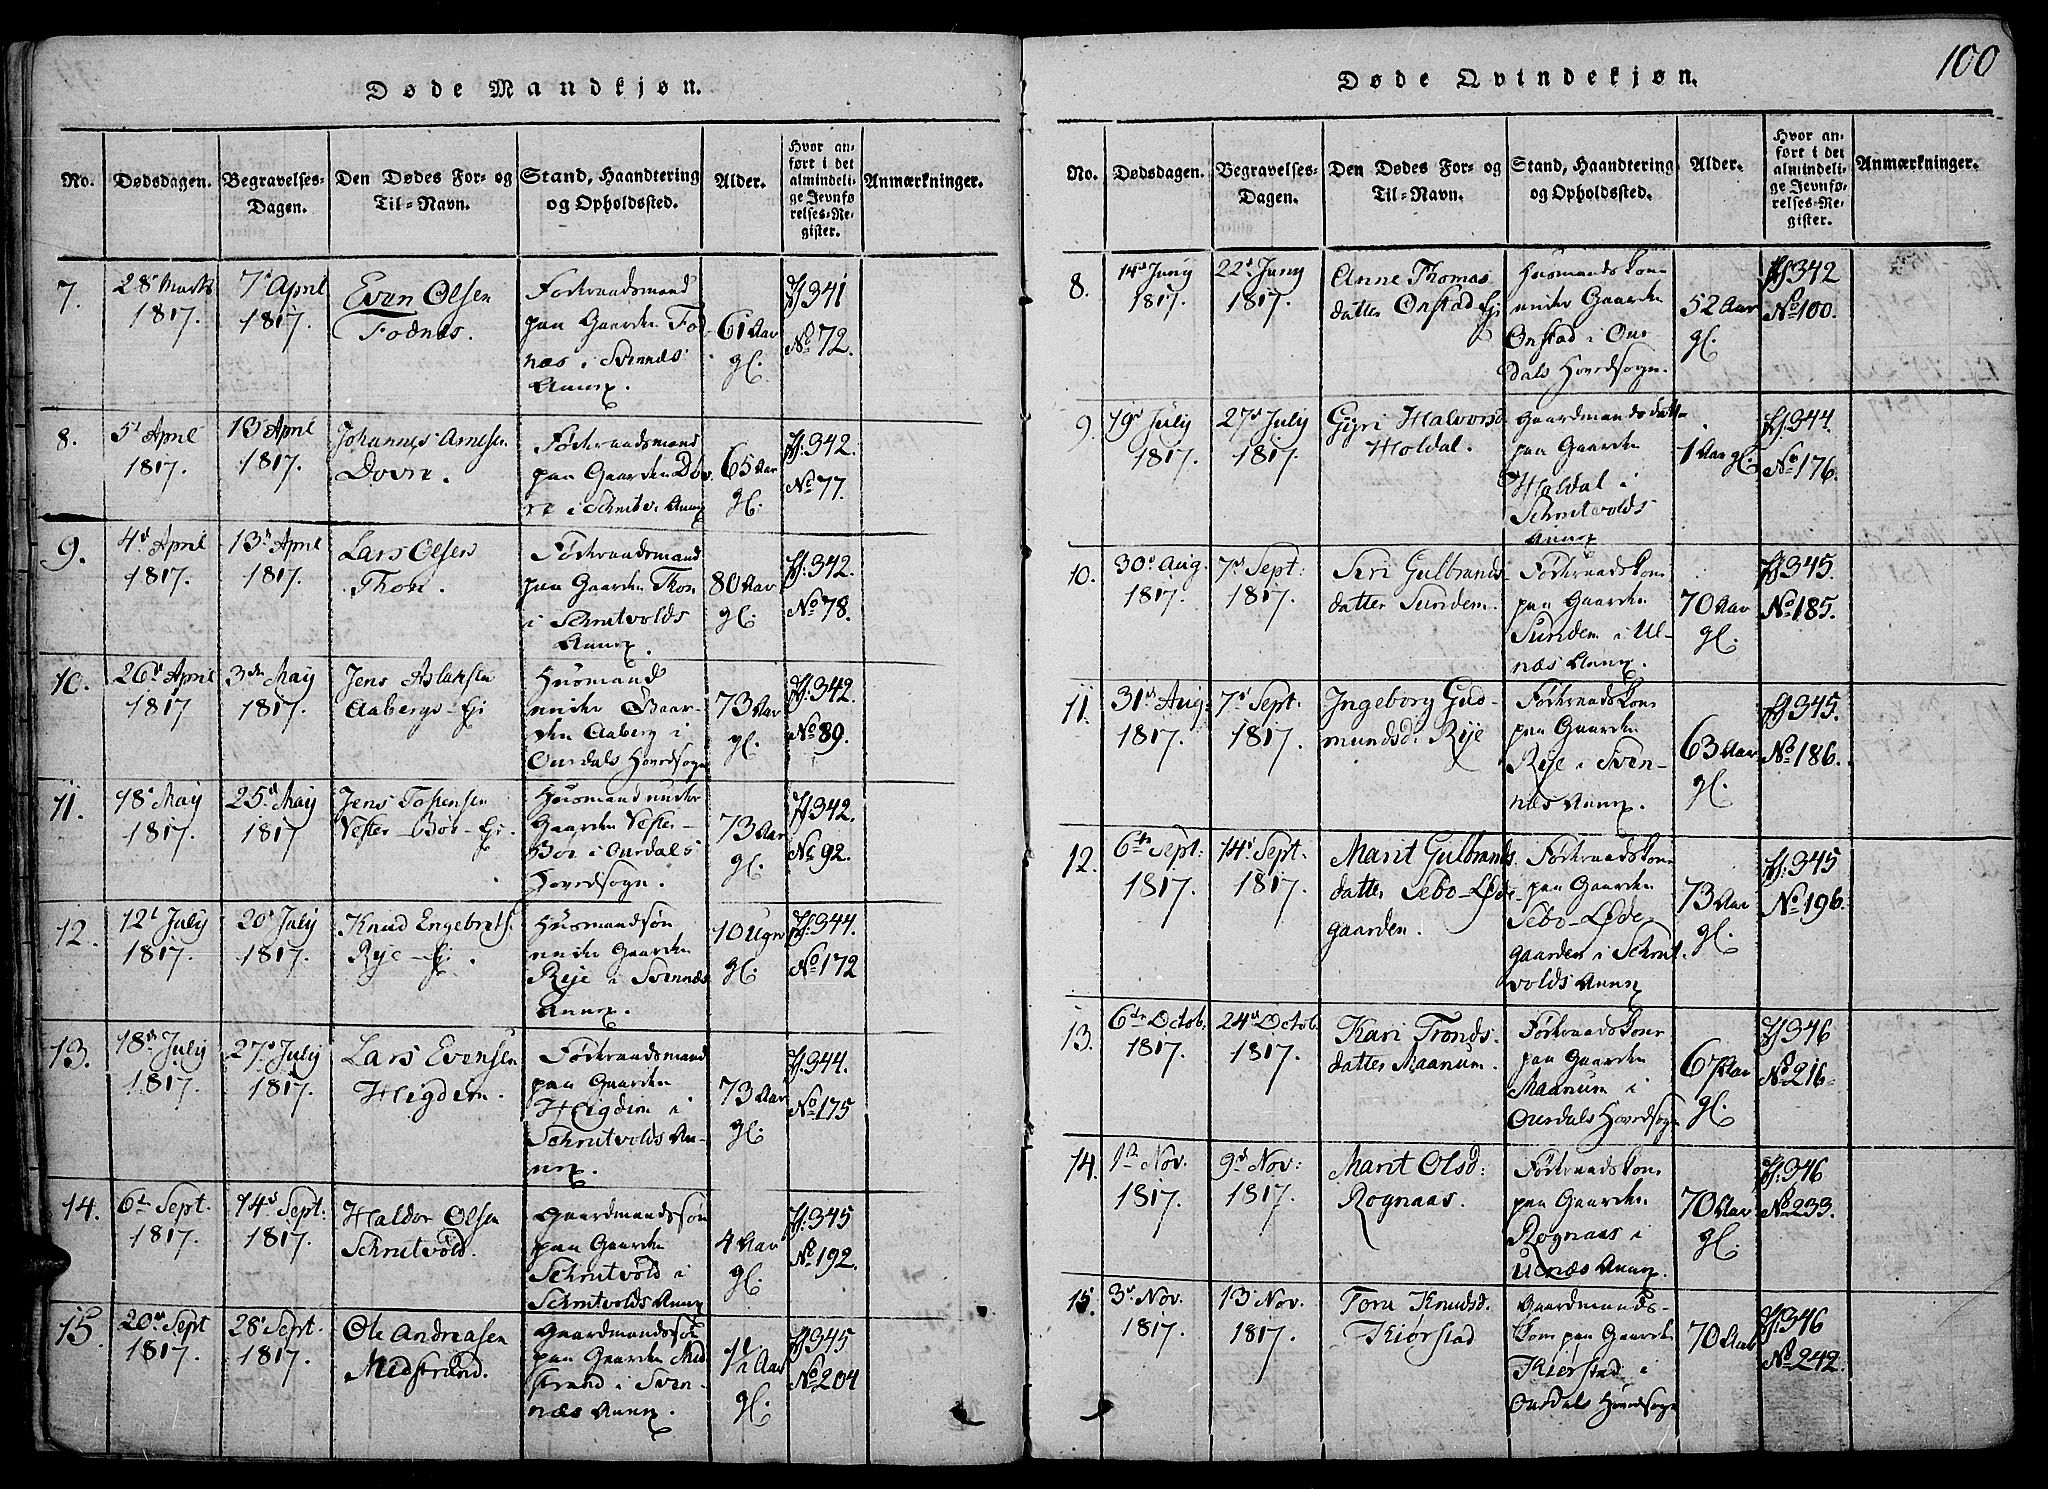 Døde Mandkjøn.
No.
Dødsdagen.
Begravelses-
Dagen.
Den Dødes For- og
Til-Navn.
Stand, Haandtering
og Opholdssted.
Alder.
Hvor an-
ført i det
almindeli-
ge Jevnfø-
relses-Re-
gister.
Anmærkninger.
7.
28d Marts
1817.
7d April
1817.
Even Olsen
Fodnæs.
Føderaadsmand
paa Gaarden Fod-
næs i Svennæs
Annex.
61 Aar
gl.
fj. 341
No 72.
8.
5d April
1817.
13 April
1817.
Johannes Arnesen
Dovre.
Føderaadsmand
paa Gaarden Dov-
re i Schrutv: Annex
65 Aar
gl.
fj. 342.
No 77.
9.
4d April
1817.
13d April
1817.
Lars Olsen
Thon.
Føderaadsmand
paa Gaarden Thon
i Schrutvolds
Annex.
80 Aar
gl.
fj. 342.
No 78.
10.
26d April
1817
3die May
1817.
Jens Aslaksen
Aabergs-Ej
Huusmand
under Gaar-
den Aaberg i
Ourdals Hovedsogn
73 Aar
gl.
fj. 342.
No 89.
11.
18d May
1817.
25d May
1817
Jens
Vestre-Bøe-Ej.
Huusmand under
Gaarden Vestre-
Bøe i Ourdals
Hovedsogn.
73 Aar
gl.
fj. 342.
No 92.
12.
12d July
1817.
20d July
1817.
Knud Engebrets.
Rye-Ej.
Huusmandsøn
under Gaarden
Rye i Svennæs
Annex.
10 Ugr
gl.
fj. 344.
No 172
13.
18d July
1817.
27d July
1817.
Lars Evensen
Hegdim.
Føderaadsmand
paa Gaarden
Hegdim i
Schrutvolds An-
nex.
73 Aar
gl.
fj. 344.
No 175
14.
6d Sept.
1817.
14d Sept:
1817.
Haldor Olsen
Schrutvold.
Gaardmandssøn
paa Gaarden
Schrutvold i
Schrutvolds Annex
4 Aar
gl.
fj. 345
No 192.
15.
20d Sept
1817.
28d Sept.
1817.
Ole Andreasen
Midstrand.
Gaardmandssøn
paa Gaarden Mid
strand i Sven-
næs Annex.
1½ Aar
gl.
fj. 345
No 204
100
Døde Qvindekjøn.
No.
Dødsdagen.
Begravelses-
Dagen.
Den Dødes For- og
Til-Navn.
Stand, Haandtering
og Opholdssted.
Alder.
Hvor an-
ført i det
almindeli-
ge Jevnfø-
relses-Re-
gister.
Anmærkninger.
8.
14d Juny
1817.
22d Juny
1817.
Anne Thomas
datter Onstad Ej
Huusmandskone
under Gaarden
Onstad i Our-
dals Hovedsogn.
52 Aar
gl.
fj. 342
No 100.
9.
19d July
1817.
27d July
1817.
Gyri Halvorsd
Holdal.
Gaardmandsdatt-
paa Gaarden
Holdal i
Schrutvolds
Annex
1 Aar gl.
fj. 344.
No 176.
10.
30d Aug.
1817.
7d Sept:
1817.
Siri Gulbrands-
datter Sundem.
Føderaadskone
paa Gaarden
Sundem i Ul-
næs Annex.
70 Aar
gl.
fj. 345.
No 185.
11.
31d Aug.
1817.
7d Sept.
1817.
Ingeborg Gud-
mundsd: Rye
Føderaadskone
paa Gaarden
Rye i Sven-
næs Annex.
63 Aar
gl.
fj. 345.
No 186.
12.
6te Sept:
1817.
14d Sept.
1817.
Marit Gulbrands
datter Sebo-Øde-
gaarden.
Føderaadskone
paa Gaarden
Sebo-Øde-
gaarden i Schrut-
volds Annex
73 Aar
gl.
fj. 345
No 196.
13.
6te Octob.
1817.
24d Octob.
1817.
Kari Tronds
datter Maanum.
Føderaadskone
paa Gaarden
Maanum i
Ourdals Hovedsogn
67 Aar
gl.
fj. 346
No 216.
14.
1d Nov.
1817.
9d Nov:
1817.
Marit Olsd:
Rognaas.
Føderaadskone
paa Gaarden
Rognaas i
Ulnæs Annex.
70 Aar
gl.
fj. 346
No 233.
15.
3d Nov.
1817.
13 Nov.
1817.
Toru Knudsd.
Kiørstad
Gaardmands-
kone paa Gaarden
Kiørstad i
Ourdals Hovedsogn
70 Aar
fj. 346
No 242.